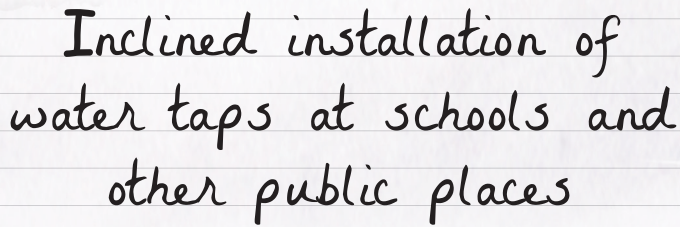 Inclined installation of
water taps at schools and
other public places